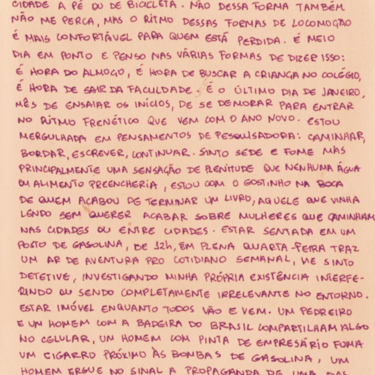 CIDADE A PÉ OU DE BICICLETA. NÃO DESSA FORMA TAMBÉM
NÃO ME PERCA, MAS O RITMO DESSAS FORMAS DE LOCOMOÇÃO
É MAIS CONFORTÁVEL PARA QUEM ESTÁ PERDIDA. É MEIO
DIA EM PONTO E PENSO NAS VÁRIAS FORMAS DE DIZER ISSO:
É HORA DO ALMOÇO, É HORA DE BUSCAR A CRIANÇA NO COLÉGIO,
É HORA DE SAIR DA FACULDADE. É O ÚLTIMO DIA DE JANEIRO,
MÊS DE ENSAIAR OS INÍCIOS, DE SE DEMORAR PARA ENTRAR
NO RITMO FRENÉTICO QUE VEM COM O ANO NOVO. ESTOU
MERGULHADA EM PENSAMENTOS DE PESQUISADORA: CAMINHAR,
BORDAR, ESCREVER, CONTINUAR. SINTO SEDE E FOME MAS
PRINCIPALMENTE UMA SENSAÇÃO DE PLENITUDE QUE NENHUMA ÁGUA
OU ALIMENTO PREENCHERIA, ESTOU COM O GOSTINHO NA BOCA
DE QUEM ACABOU DE TERMINAR UM LIVRO, AQUELE QUE VINHA
LENDO SEM QUERER ACABAR SOBRE MULHERES QUE CAMINHAM
NAS CIDADES OU ENTRE CIDADES. ESTAR SENTADA EM UM
POSTO DE GASOLINA, DE 12h, EM PLENA QUARTA-FEIRA TRAZ
UM AR DE AVENTURA PRO COTIDIANO SEMANAL, ME SINTO
DETETIVE, INVESTIGANDO MINHA PRÓPRIA EXISTÊNCIA INTERFE-
RINDO OU SENDO COMPLETAMENTE IRRELEVANTE NO ENTORNO.
ESTAR IMÓVEL ENQUANTO TODOS VÃO E VEM. UM PEDREIRO
E UM HOMEM COM A BADEIRA DO BRASIL COMPARTILHAM ALGO
NO CELULAR, UM HOMEM COM PINTA DE EMPRESÁRIO FUMA
UM CIGARRO PRÓXIMO ÀS BOMBAS DE GASOLINA, UM
HOMEM ERGUE NO SINAL A PROPAGANDA DE UMA DAS